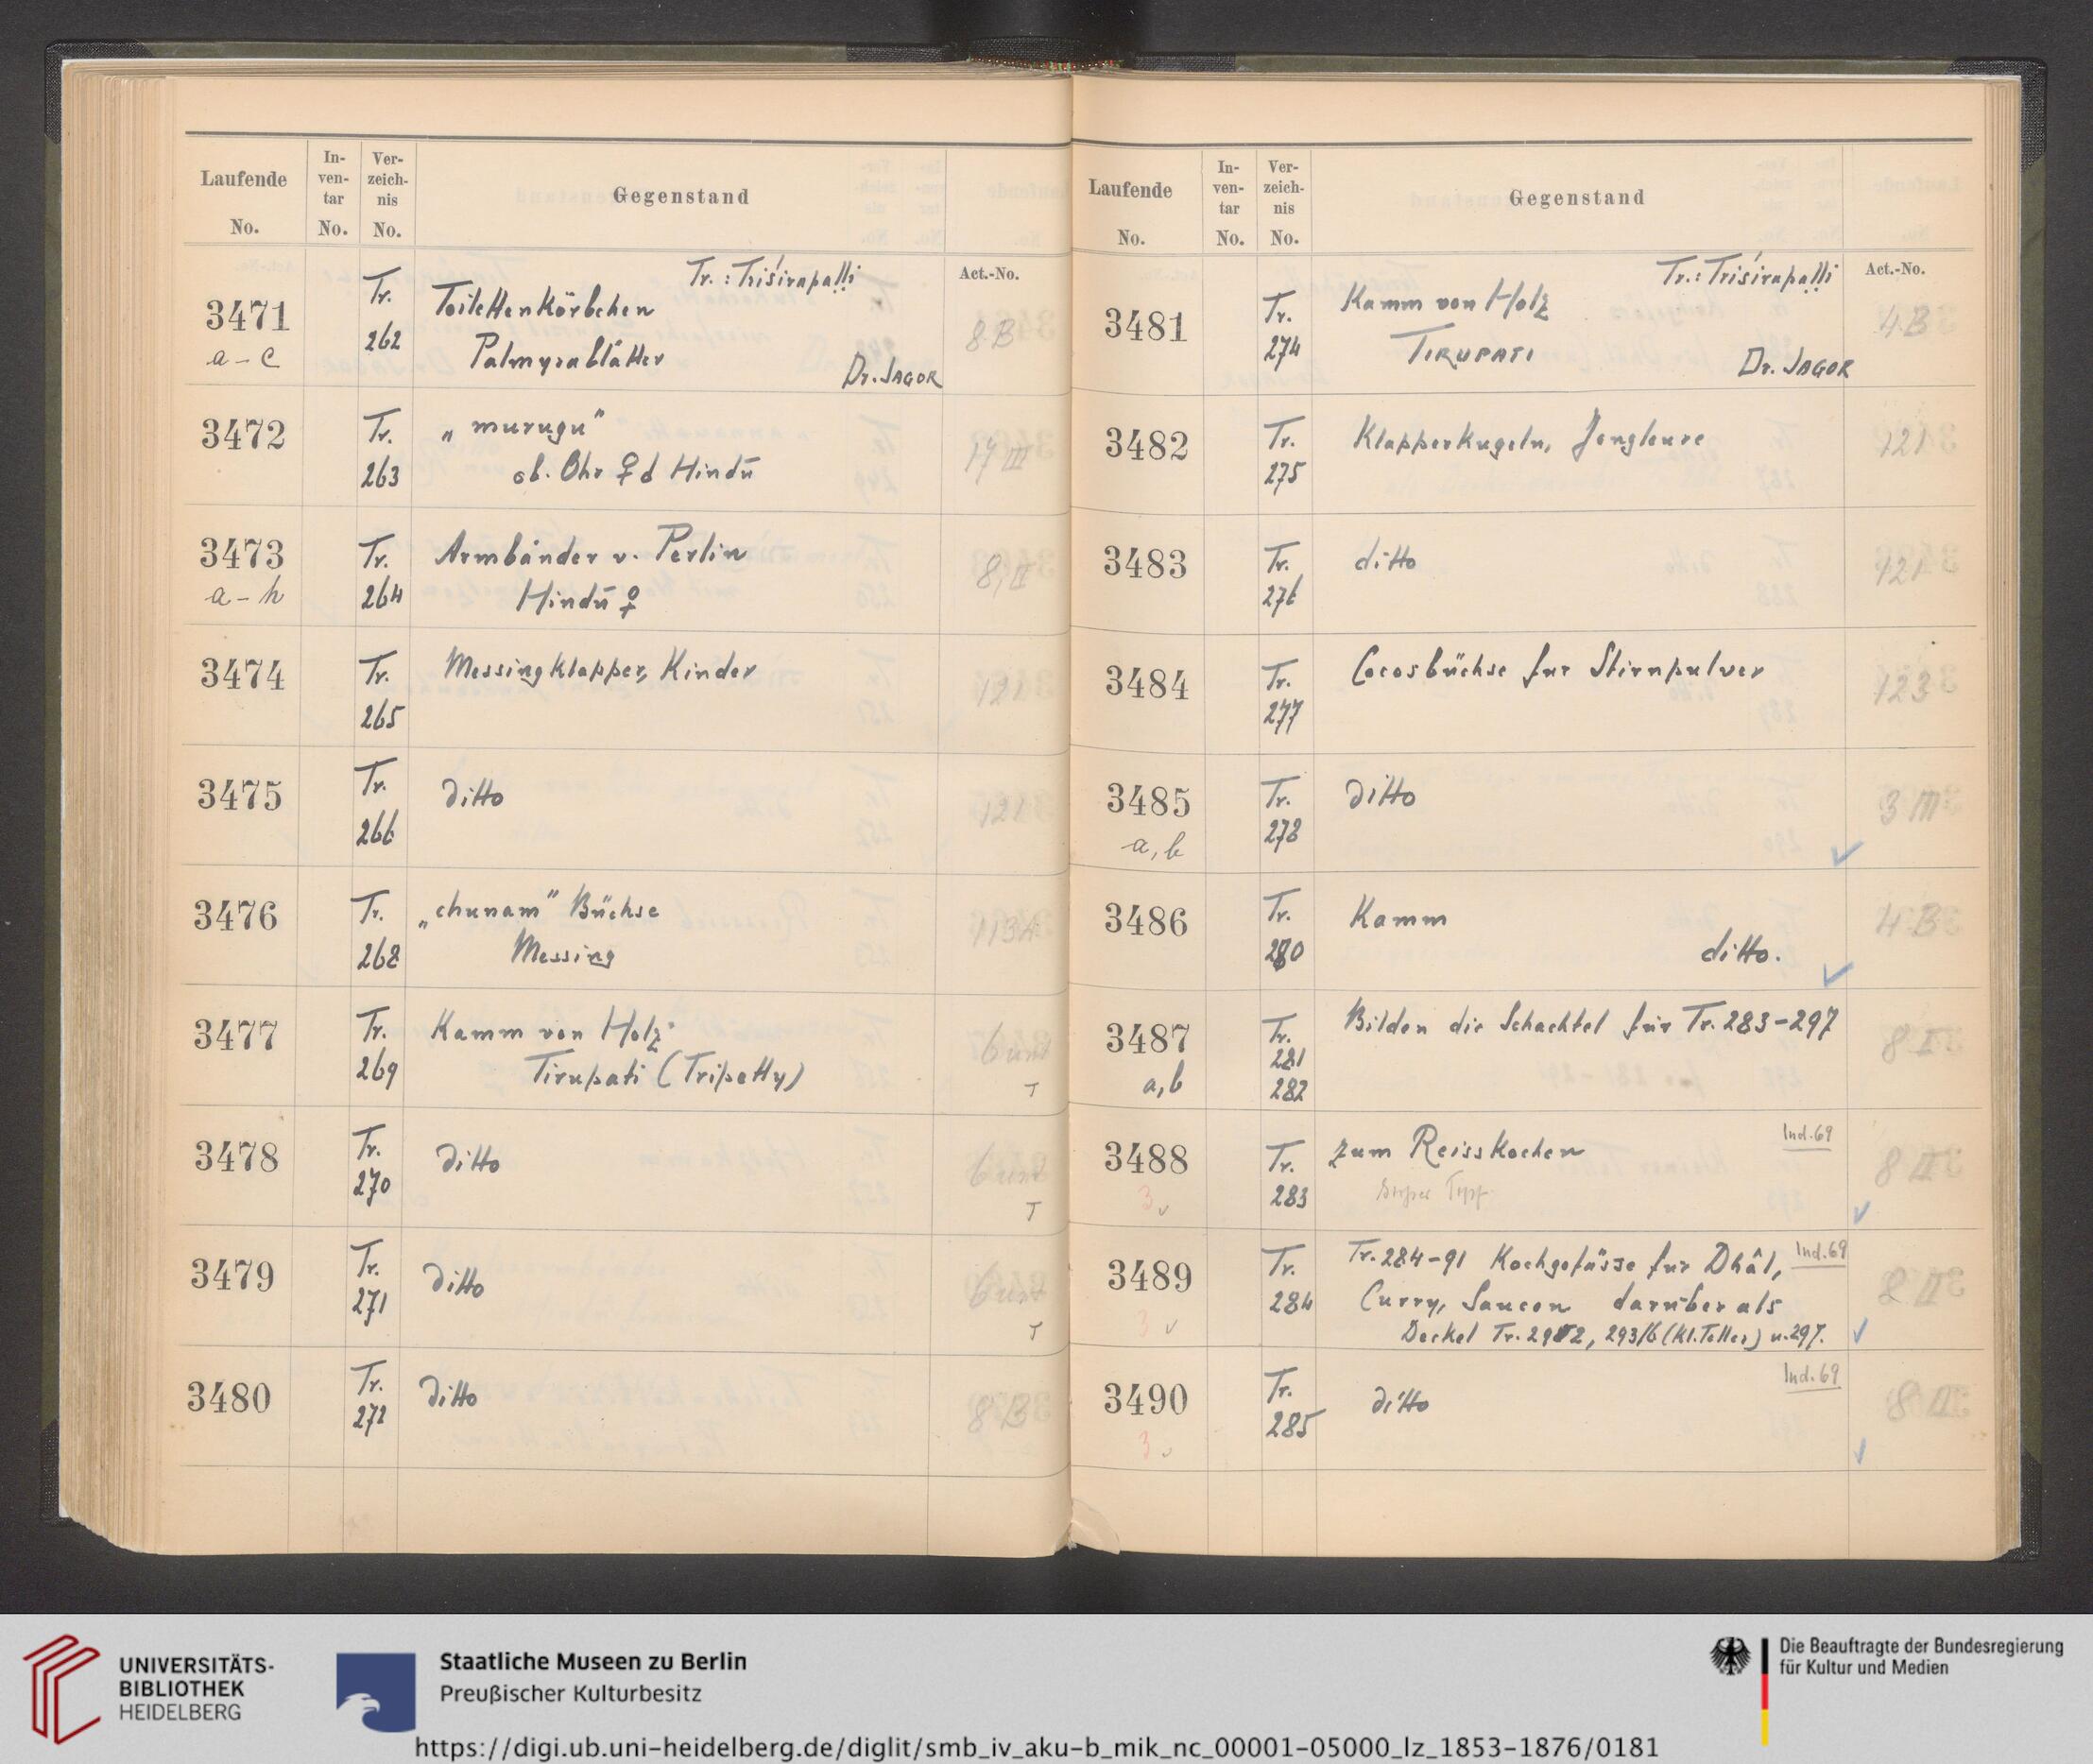 Laufende No.
In-ven-tar No.
Ver-zeich-nis No.
Gegenstand
Act.-No.
Tr.: Triśirapaḷḷi
3471 Tr. Toilettenkörbchen
a - c 262 Palmyrablätter Dr. JAGOR 8 B
3472 Tr. „murugu"
263 ob. Ohr ♀ d Hindū 17 III
3473 Tr. Armbänder v. Perlin
a - h 264 Hindū ♀ 8, II
3474 Tr. Messingklapper, Kinder 121
265
3475 Tr. ditto 121
266
3476 Tr. „chunam" Büchse
268 Messing 113A
3477 Tr. Kamm von Holz
269 Tirupati (Tripetty)
T
3478 Tr. ditto
270
T
3479 Tr. ditto
271
T
3480 Tr. ditto 8 B
272
Laufende No.
In-ven-tar No.
Ver-zeich-nis No.
Gegenstand
Act.-No.
Tr.: Triśirapaḷḷi
3481 Tr. Kamm von Holz 4 B
274 TIRUPATI Dr. JAGOR
3482 Tr. Klapperkugeln, Jongleure 121
275
3483 Tr. ditto 121
276
3484 Tr. Cocosbüchse für Stirnpulver 123
277
3485 Tr. ditto 3 III
a, b 278
3486 Tr. Kamm 4 B
280 ditto.
3487 Tr. Bilden die Schachtel für Tr. 283-297 8 I
281
a, b 282
3488 Tr. zum Reisskochen Ind. 69 8 II
3 283 Topf
3489 Tr. Tr. 284-91 Kochgefässe für Dhâl, Ind. 69
284 Curry, Saucen darüber als 8 II
3 Deckel Tr. 292, 293/6 (kl. Teller) u. 297.
3490 Tr. ditto Ind. 69 8 II
3 285
UNIVERSITÄTS-
BIBLIOTHEK
HEIDELBERG
Staatliche Museen zu Berlin
Preußischer Kulturbesitz
Die Beauftragte der Bundesregierung
für Kultur und Medien
https://digi.ub.uni-heidelberg.de/diglit/smb_iv_aku-b_mik_nc_00001-05000_lz_1853-1876/0181